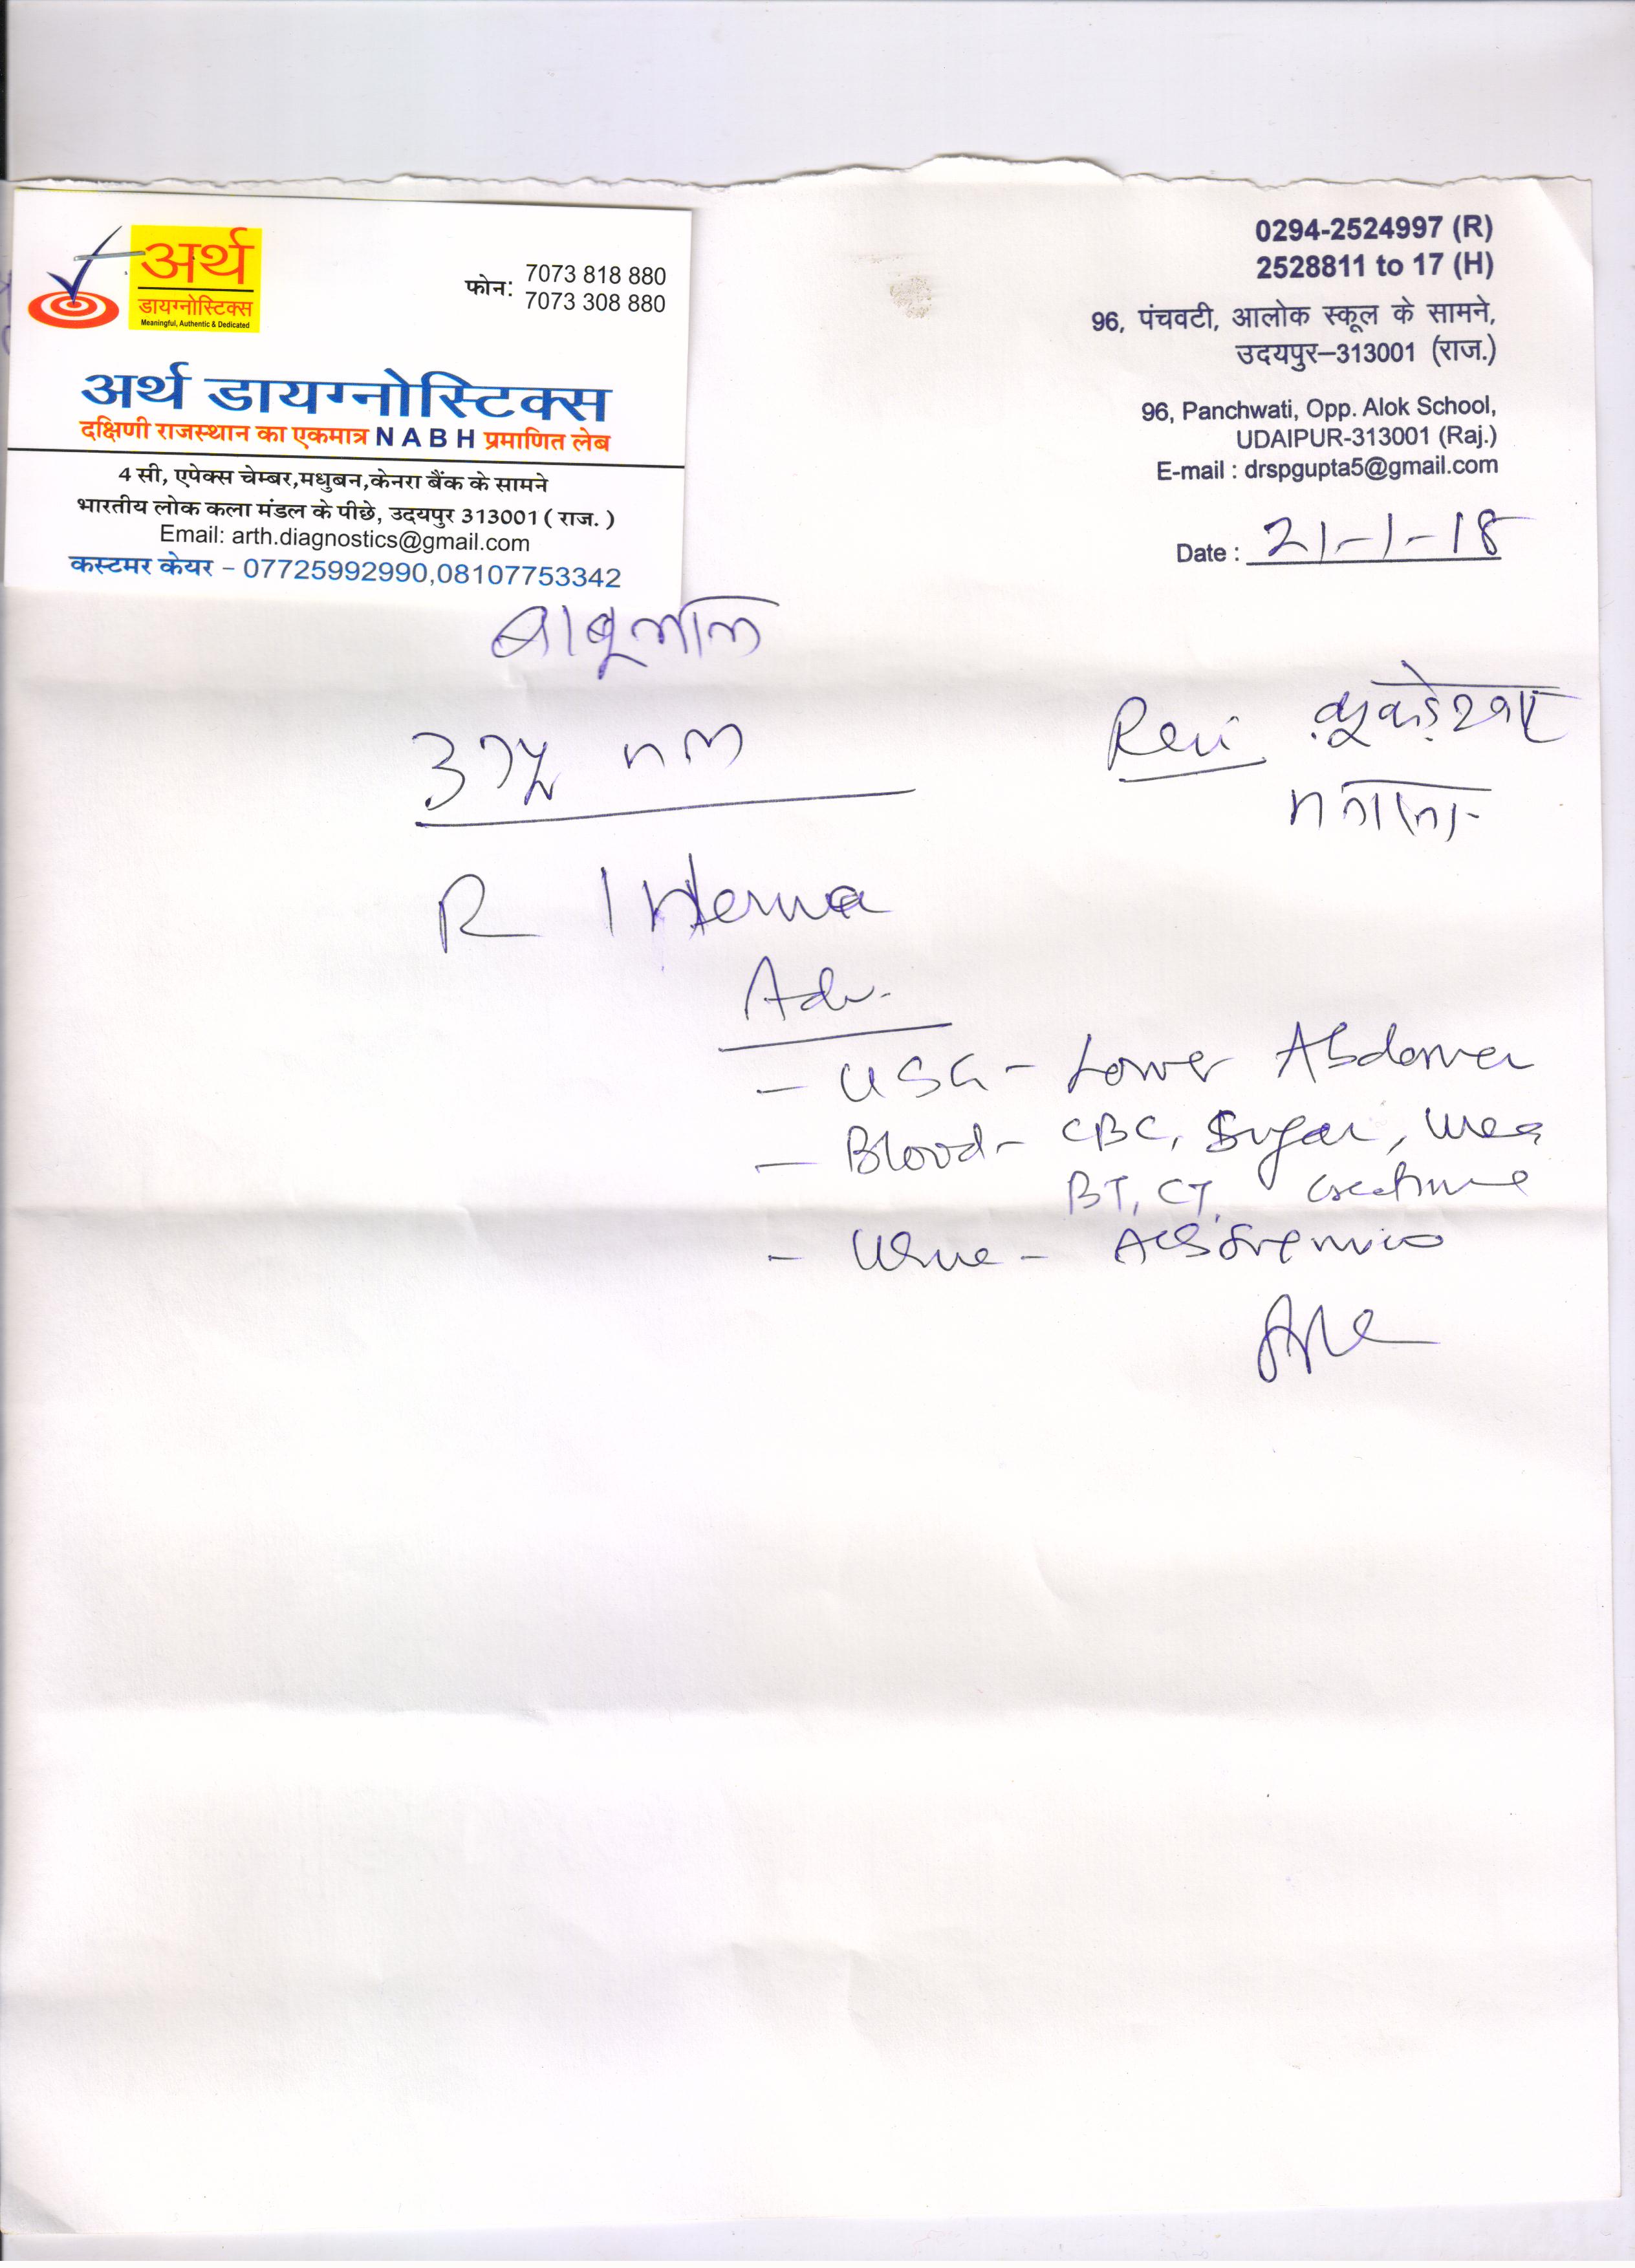 अर्थ
डायग्नोस्टिक्स
Meaningful, Authentic & Dedicated
फोन: 7073 818 880
7073 308 880
अर्थ डायग्नोस्टिक्स
दक्षिणी राजस्थान का एकमात्र N A B H प्रमाणित लेब
4 सी, एपेक्स चेम्बर,मधुबन,केनरा बैंक के सामने
भारतीय लोक कला मंडल के पीछे, उदयपुर 313001 ( राज. )
Email: arth.diagnostics@gmail.com
कस्टमर केयर – 07725992990,08107753342
0294-2524997 (R)
2528811 to 17 (H)
96, पंचवटी, आलोक स्कूल के सामने,
उदयपुर–313001 (राज.)
96, Panchwati, Opp. Alok School,
UDAIPUR-313001 (Raj.)
E-mail : drspgupta5@gmail.com
Date : 21-1-18
बाबूलाल
R I Hernia
Adv.
- USG - Lower Abdomen
- Blood - CBC, Sugar, Urea
BT, CT, Creatinine
- Urine -